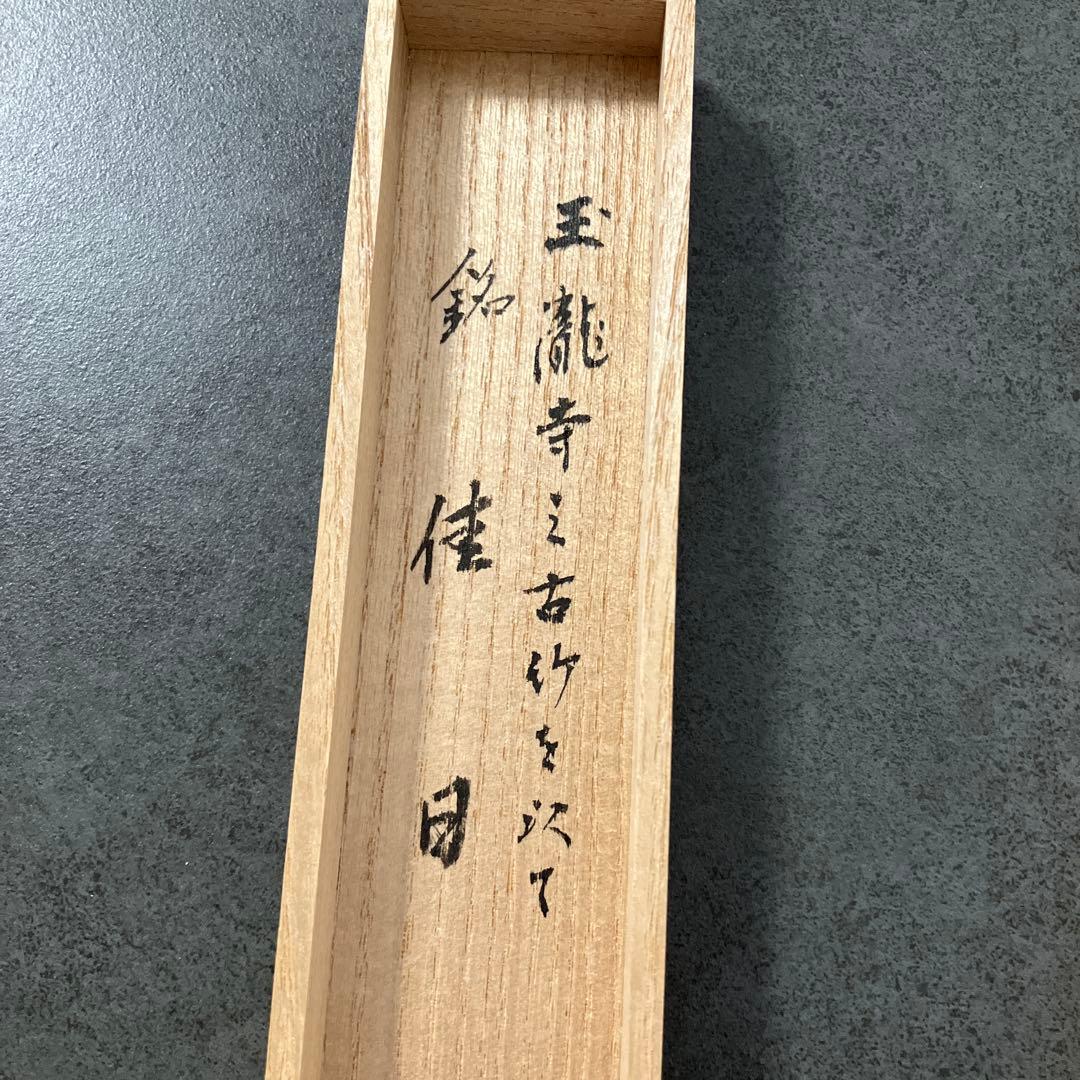 玉瀧寺之古竹を以て
銘 佳日